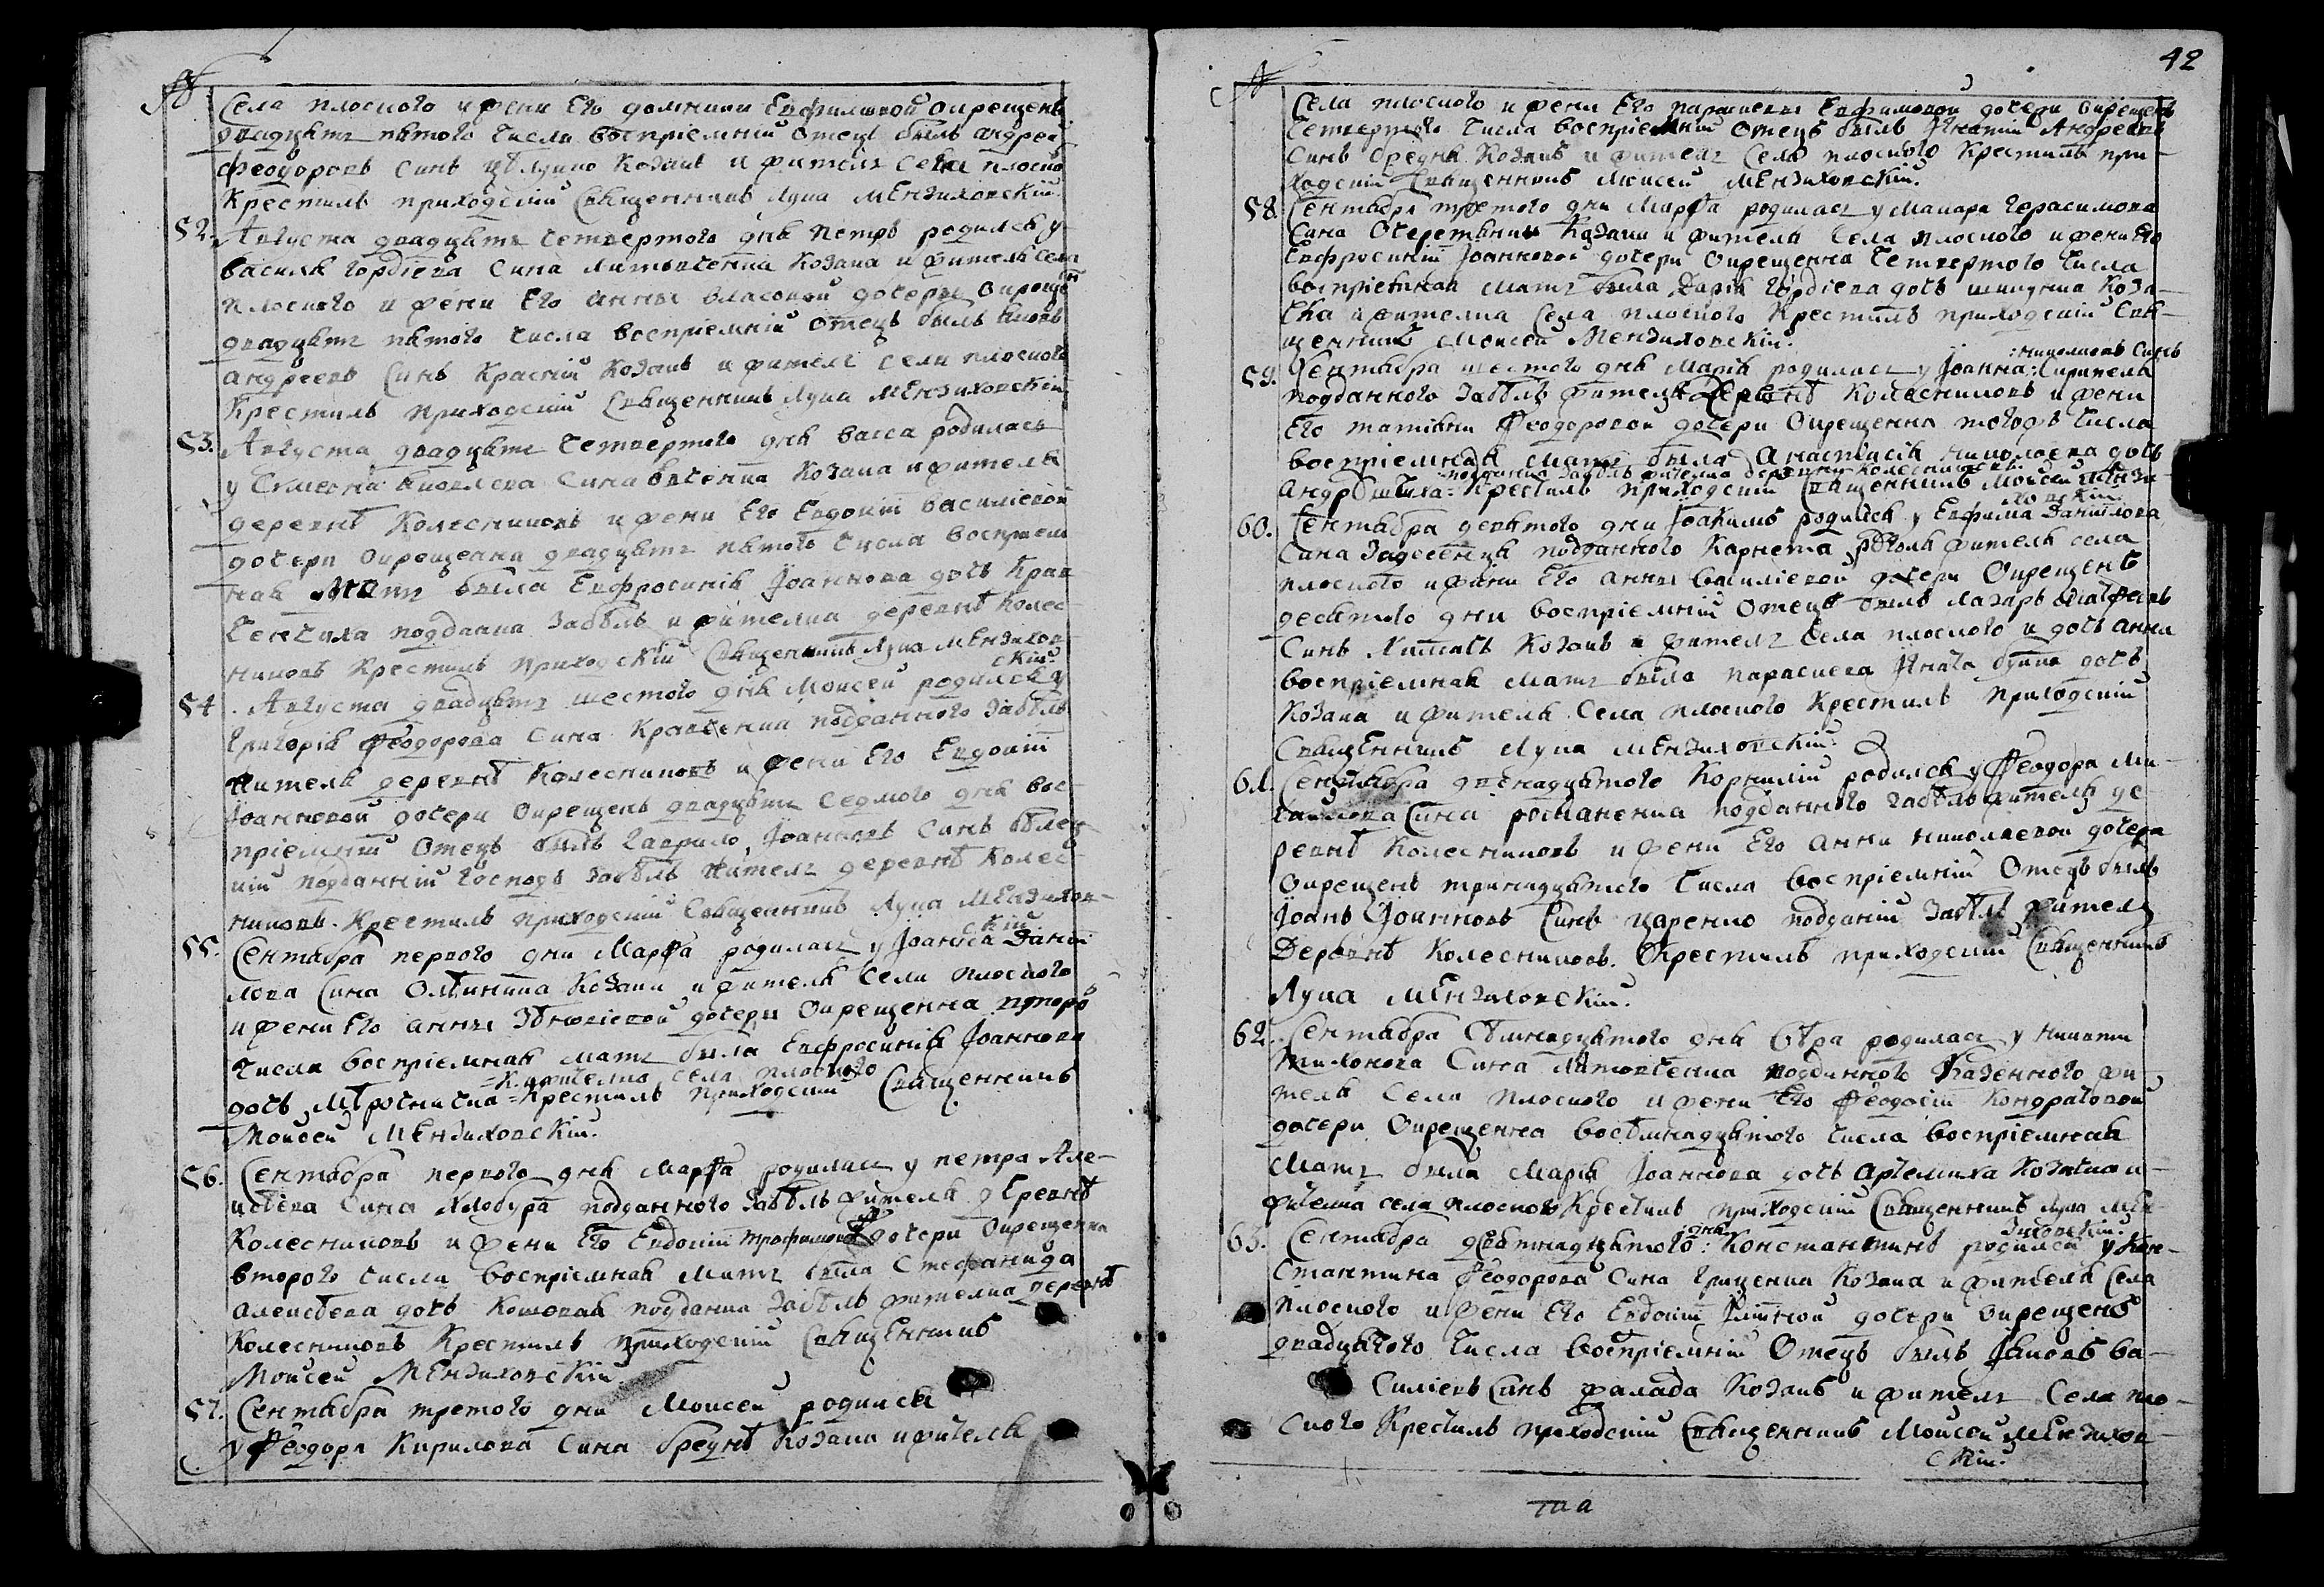 №
Села плоского и жени Его домники Евфимовой окрещенъ
двадцять пятого числа восприемній отецъ былъ андрей
Феодоровъ синъ козакъ и жителъ села плоско
Крестилъ приходскій священникъ Лука Мензиховскій.
52. Августа двадцять четвертого дня Петръ родился у
василя Гордіева сина Литовченка козака и жителя села
плоского и жени Его анны власовой дочери окрещен
двадцять пятого числа восприемній отецъ былъ яковъ
андреевъ синъ Красній козакъ и жителъ села плоского
Крестилъ приходскій священникъ Лука Мензиховскій
53. Августа двадцять четвертого дня васса родилась
у Симеона Яковлева сина козака и жителя
деревнѣ Колесниковъ и жени Его Евдокіи василіевой
дочери окрещенна двадцять пятого числа восприем
ная мать была Евфросинія Іоаннова дочь Крав
ченчиха подданна Забѣлъ и жителка деревнѣ Колес
никовъ Крестилъ приходскій священникъ Лука Мензихов
скій.
54. Августа двадцять шестого дня Моисей родился у
Григорія Феодорова сина Кравченка подданного Забѣлъ
жителя деревнѣ Колесниковъ и жени Его Евдокіи
Іоанновой дочери окрещенъ двадцять седмого дня вос
пріемній отецъ былъ Гаврило Іоанновъ синъ
кій подданній господъ Забѣлъ жителъ деревнѣ Колес
никовъ. Крестилъ приходскій священникъ Лука Мензихов-
скій.
55. Сентября первого дня Марфа родилась у Іоанна Дани
лова сина козака и жителя села плоского
и жени Его анны дочери окрещенна второго
числа восприемная мать была Евфросинія Іоаннова
=К. жителка села плоского
дочь = Крестилъ приходскій священникъ
Моисей Мензиховскій.
56. Сентября первого дня Марфа родилась у петра Але-
ксѣева сина подданного Забѣлъ жителя деревнѣ
Колесниковъ и жени Его Евдокіи Трофимовой дочери окрещенна
второго числа восприемная мать была Стефанида
алексѣева дочь подданна Забѣлъ жителка деревнѣ
Колесниковъ Крестилъ приходскій священникъ
Моисей Мензиховскій.
57. Сентября третого дня Моисей родился
у Феодора Кирилова сина козака и жителя
№
42
Села плоского и жени Его параскевы Евфимовой дочери окрещенъ
четвертого числа восприемній отецъ былъ Игнатій Андреевъ
синъ козакъ и жителъ села плоского Крестилъ при-
ходскій священникъ Моисей Мензиховскій.
58. Сентября третого дня Марфа родилась у Макара Герасимова
сина козака и жителя села плоского и жени Его
Евфросиніи Іоанновой дочери окрещенна четвертого числа
восприемная мать была Дарія Гордіева дочь коза-
чка и жителка села плоского Крестилъ приходскій свя-
щенникъ Моисей Мензиховскій.
:николаевъ синъ
59. Сентября шестого дня Марія родилась у Іоанна:
подданного Забѣлъ жителя Деревнѣ Колесниковъ и жени
Его татіяни Феодоровой дочери окрещенна тогожъ числа
восприемная мать была Анастасія николаева дочь
подданна Забѣлъ жителка деревни Колесниковъ.
Крестилъ приходскій священникъ Моисей Мензи
ховскій.
60. Сентября девятого дня Іоакимъ родился у Евфима Даніилова
сина подданного жителя села
плоского и жени Его анны василіевой дочери окрещенъ
десятого дня восприемній отецъ былъ Лазаръ Матфеевъ
синъ козакъ и жителъ села плоского и дочь анна
восприемная мать была параскева дочь
козака и жителя села плоского Крестилъ приходскій
священникъ Лука Мензиховскій.
61. Сентября двенадцятого Корнилій родился у Феодора Ми-
хайлова сина подданного Забѣлъ жителя де
ревнѣ Колесниковъ и жени Его анни николаевой дочери
окрещенъ тринадцятого числа восприемній отецъ былъ
Іоанъ Іоанновъ синъ царенко подданій Забѣлъ жителъ
Деревнѣ Колесниковъ. Окрестилъ приходскій священникъ
Лука Мензиховскій.
62. Сентября сѣмнадцятого дня вѣра родилась у никити
Тихонова сина Литовченка подданного Казенного жи
теля села плоского и жени Его Феодосіи Кондратовой
дочери окрещенна восѣмнадцятого числа восприемная
мать была Марія Іоаннова дочь Артемиха козачка и
жителка села плоского Крестилъ приходскій священникъ Лука Мен
зиховскій.
дня
63. Сентября девятнадцятого: Константинъ родился у Кон-
стантина Феодорова сина Гриценка козака и жителя села
плоского и жени Его Евдокіи дочери окрещенъ
двадцятого числа восприемній отецъ былъ Яковъ ва-
силіевъ синъ фалада козакъ и жителъ села пло-
ского Крестилъ приходскій священникъ Моисей Мензихов-
скій.